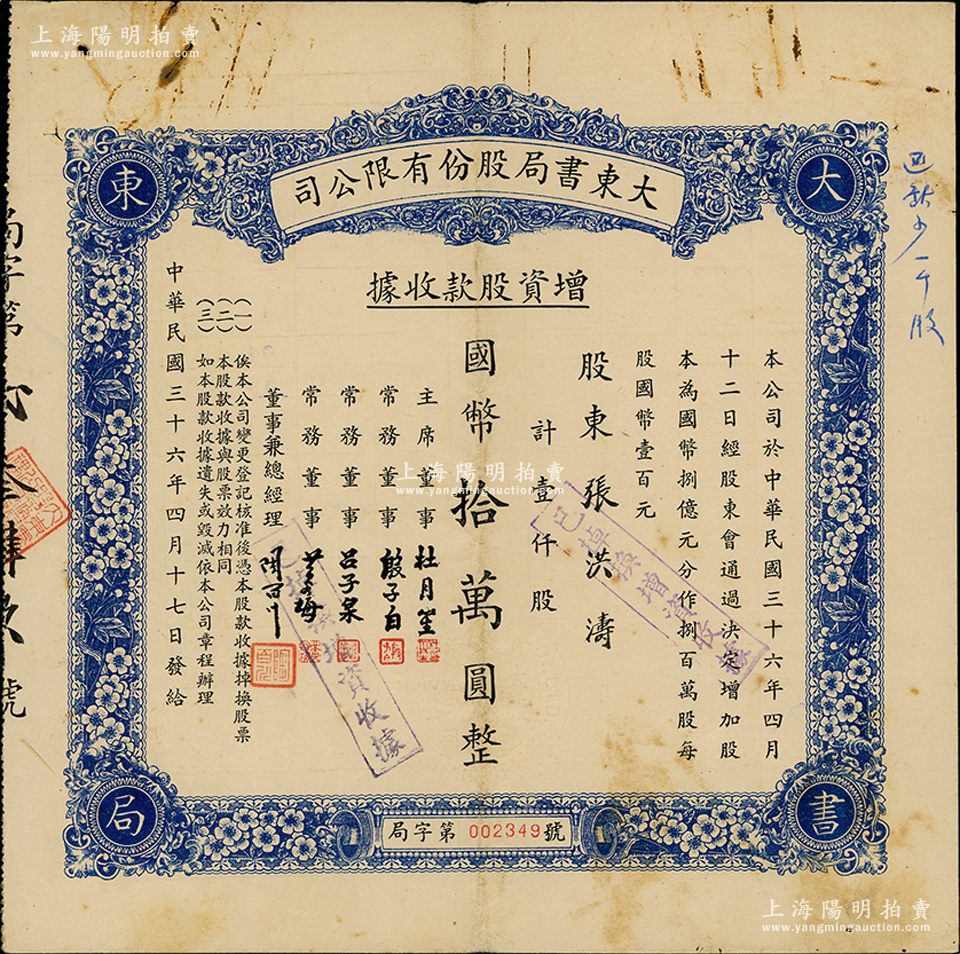 上海陽明拍賣
www.yangmingauction.com
大東書局股份有限公司
大
東
書
局
增資股款收據
本公司於中華民國三十六年四月
十二日經股東會通過決定增加股
本為國幣捌億元分作捌百萬股每
股國幣壹百元
股東 張洪濤
計 壹仟股
國幣拾萬圓整
主席董事 杜月笙
常務董事 殷子白
常務董事 呂子泉
常務董事
董事兼總經理 陶百川
(一) 俟本公司變更登記核准後憑本股款收據掉換股票
(二) 本股款收據與股票效力相同
(三) 如本股款收據遺失或毀滅依本公司章程辦理
中華民國三十六年四月十七日發給
局字第 002349 號
已掉換增資收據
已掉換增資收據
一千股
局字第
號
上海陽明拍賣
www.yangmingauction.com
上海陽明拍賣
www.yangmingauction.com